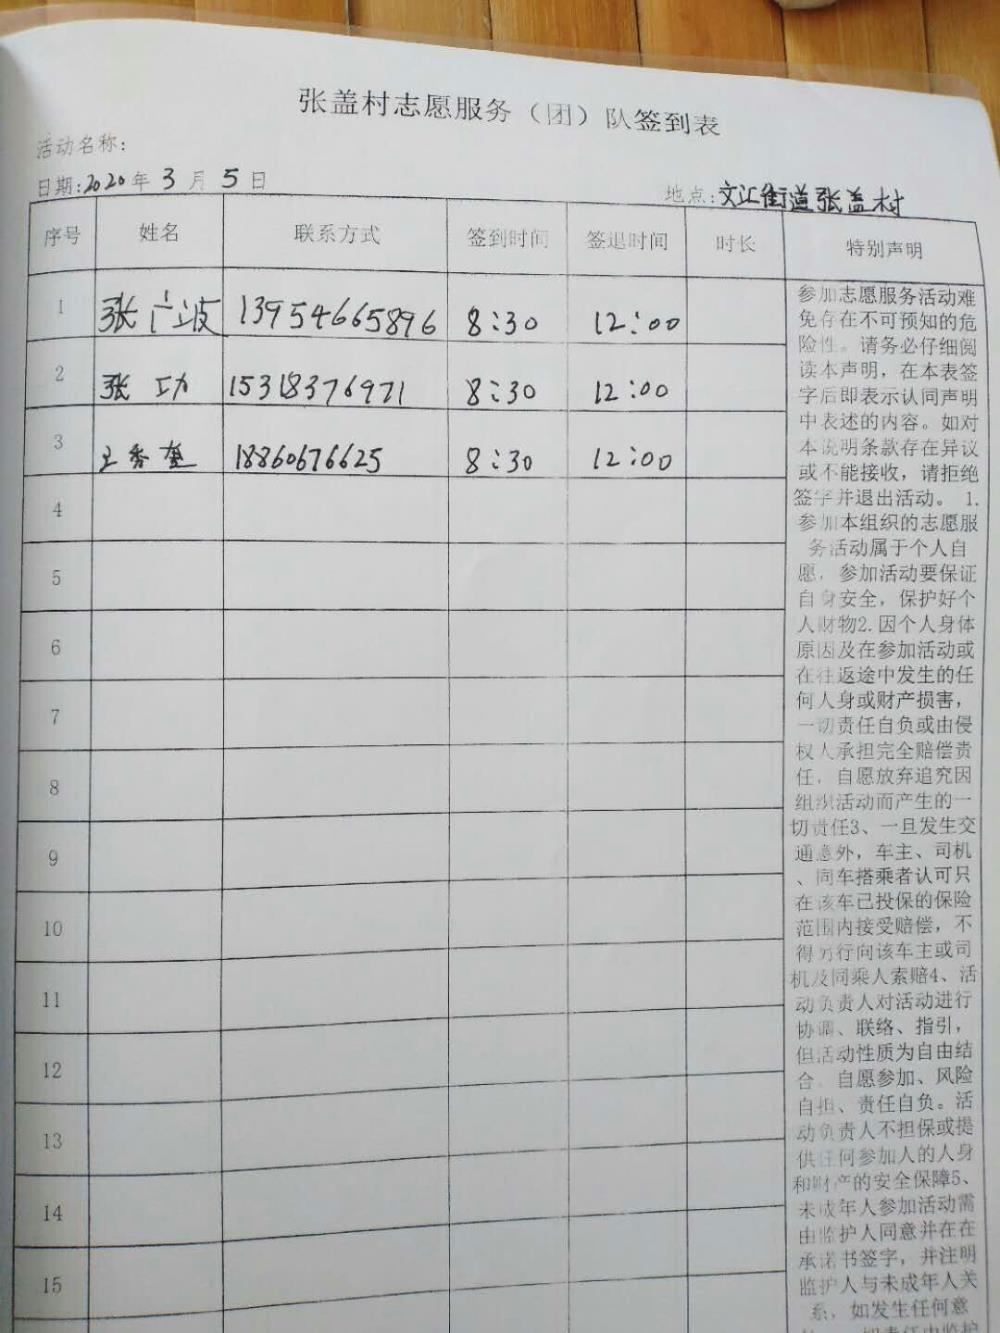 张盖村志愿服务（团）队签到表
活动名称：
日期:2020年 3 月 5 日
地点:文汇街道张盖村
序号 姓名 联系方式 签到时间 签退时间 时长 特别声明
1 张 13954665896 8:30 12:00
2 张功 15318376971 8:30 12:00
3 王秀 18860676625 8:30 12:00
4
5
6
7
8
9
10
11
12
13
14
15
参加志愿服务活动难
免存在不可预知的危
险性。请务必仔细阅
读本声明，在本表签
字后即表示认同声明
中表述的内容。如对
本说明条款存在异议
或不能接收，请拒绝
签字并退出活动。 1.
参加本组织的志愿服
务活动属于个人自
愿，参加活动要保证
自身安全，保护好个
人财物2.因个人身体
原因及在参加活动或
在往返途中发生的任
何人身或财产损害，
一切责任自负或由侵
权人承担完全赔偿责
任，自愿放弃追究因
组织活动而产生的一
切责任3、一旦发生交
通意外，车主、司机
、同车搭乘者认可只
在该车已投保的保险
范围内接受赔偿，不
得另行向该车主或司
机及同乘人索赔4、活
动负责人对活动进行
协调、联络、指引，
但活动性质为自由结
合，自愿参加、风险
自担、责任自负。活
动负责人不担保或提
供任何参加人的人身
和财产的安全保障5、
未成年人参加活动需
由监护人同意并在在
承诺书签字，并注明
监护人与未成年人关
系，如发生任何意